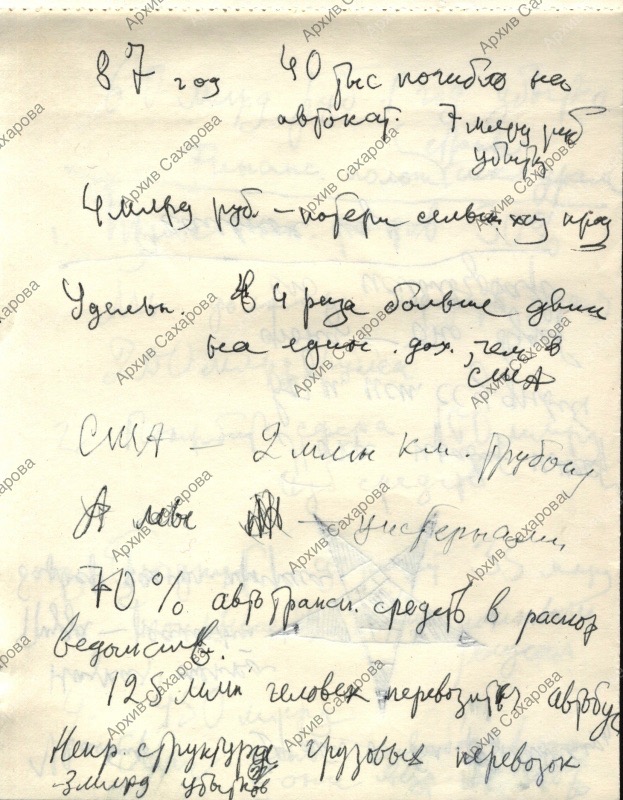 87 год 40 тыс погибло на
автокат. 7 млрд руб
убытк
4 млрд руб – потери сельск. хоз прод
Удельн. В 4 раза больше движ
на един. дох., чем в
США
США – 2 млн км. Трубопр
А мы – цистернами
70% автотрансп. средств в распор
ведомств.
125 млн человек перевозит автобус
Непр. структура грузовых перевозок
– 3 млрд убытков
Архив Сахарова